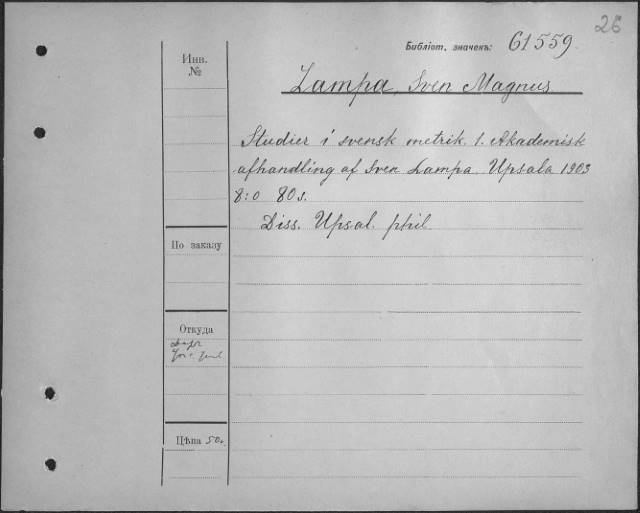 26
Библіот. значекъ: 61559.
Инв.
№
Lampa, Sven Magnus
Studier i svensk metrik. 1. Akademisk
afhandling af Sven Lampa. Upsala 1903
8:o 80 s.
Diss. Upsal. phil.
По заказу
Откуда
Цѣна 50к.